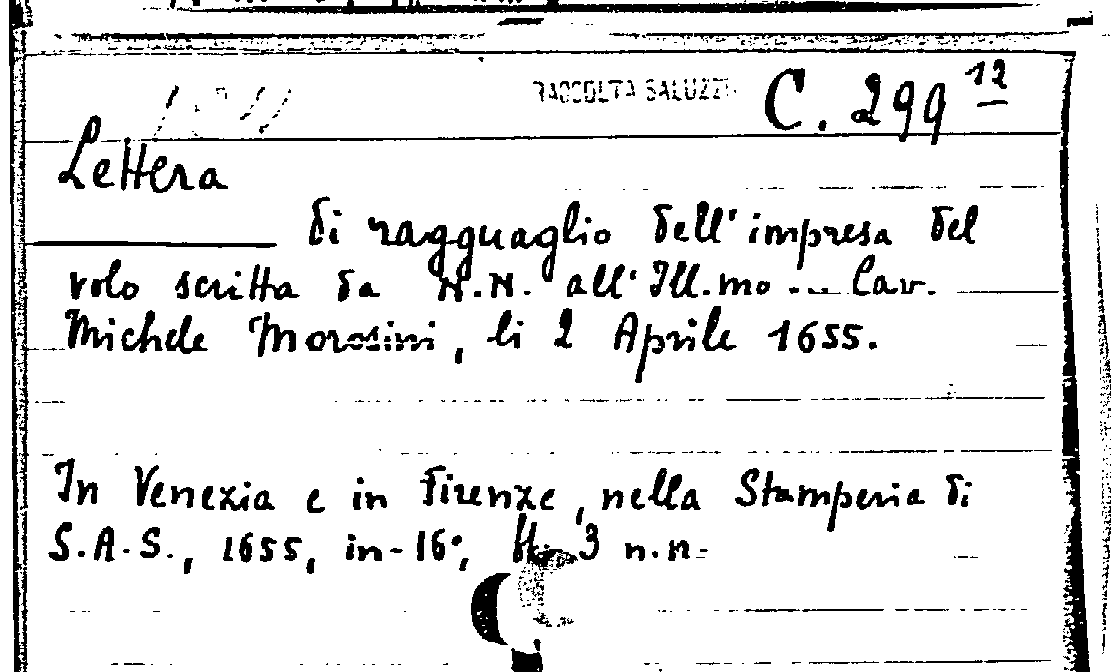 RACCOLTA SALUZZO C. 299 12
Lettera
di ragguaglio dell'impresa del
volo scritta da N.N. all'Ill.mo ... Cav.
Michele Morosini, li 2 Aprile 1655.
In Venezia e in Firenze, nella Stamperia di
S.A.S., 1655, in-16°, 3 n.n.